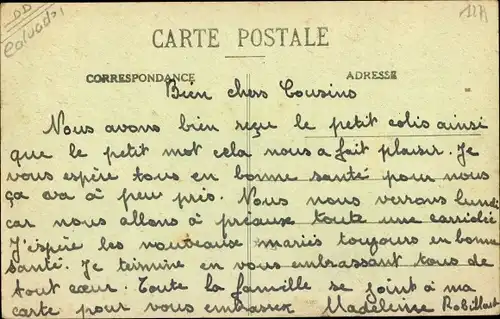 Calvados
CARTE POSTALE
CORRESPONDANCE
ADRESSE
Bien chers Cousins
Nous avons bien reçu le petit colis ainsi
que le petit mot cela nous a fait plaisir. Je
vous espère tous en bonne santé pour nous
ça va à peu pris. Nous nous verrons lundi
car nous allons à priaux toute une carriolée
J'espère les nouveaux mariés toujours en bonne
santé. Je termine en vous embrassant tous de
tout cœur. Toute la famille se joint à ma
carte pour vous embrasser Madeleine Robillard